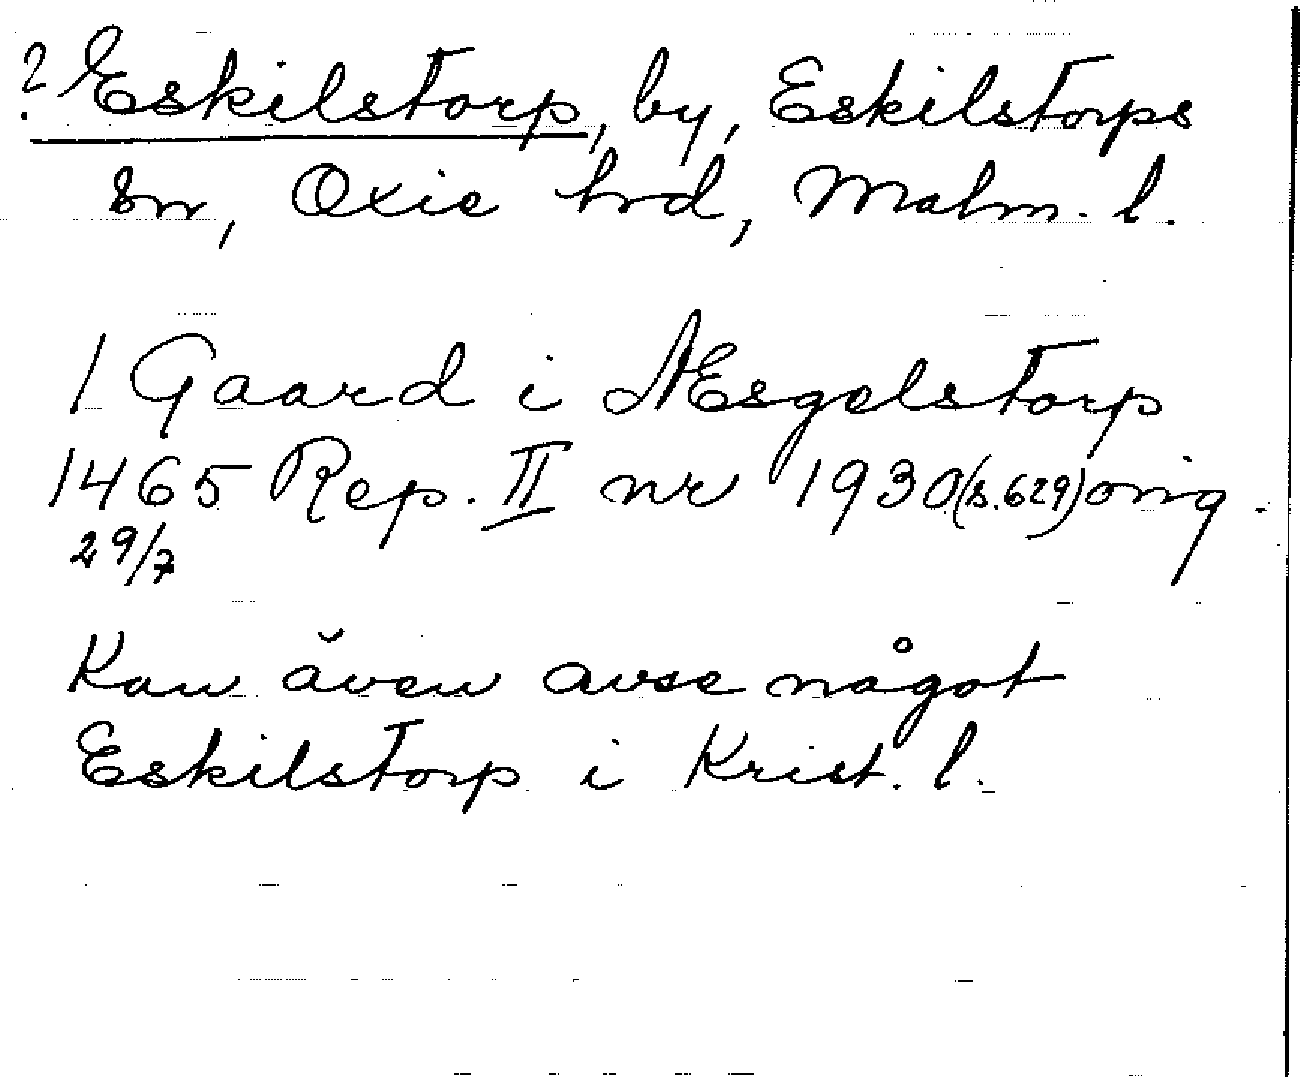 ? Eskilstorp, by, Eskilstorps
sn, Oxie hrd, Malm. l.
1 Gaard i Æsgelstorp
1465 Rep. II nr 1930 (s. 629) orig.
29/7
Kan även avse något
Eskilstorp i Krist. l.